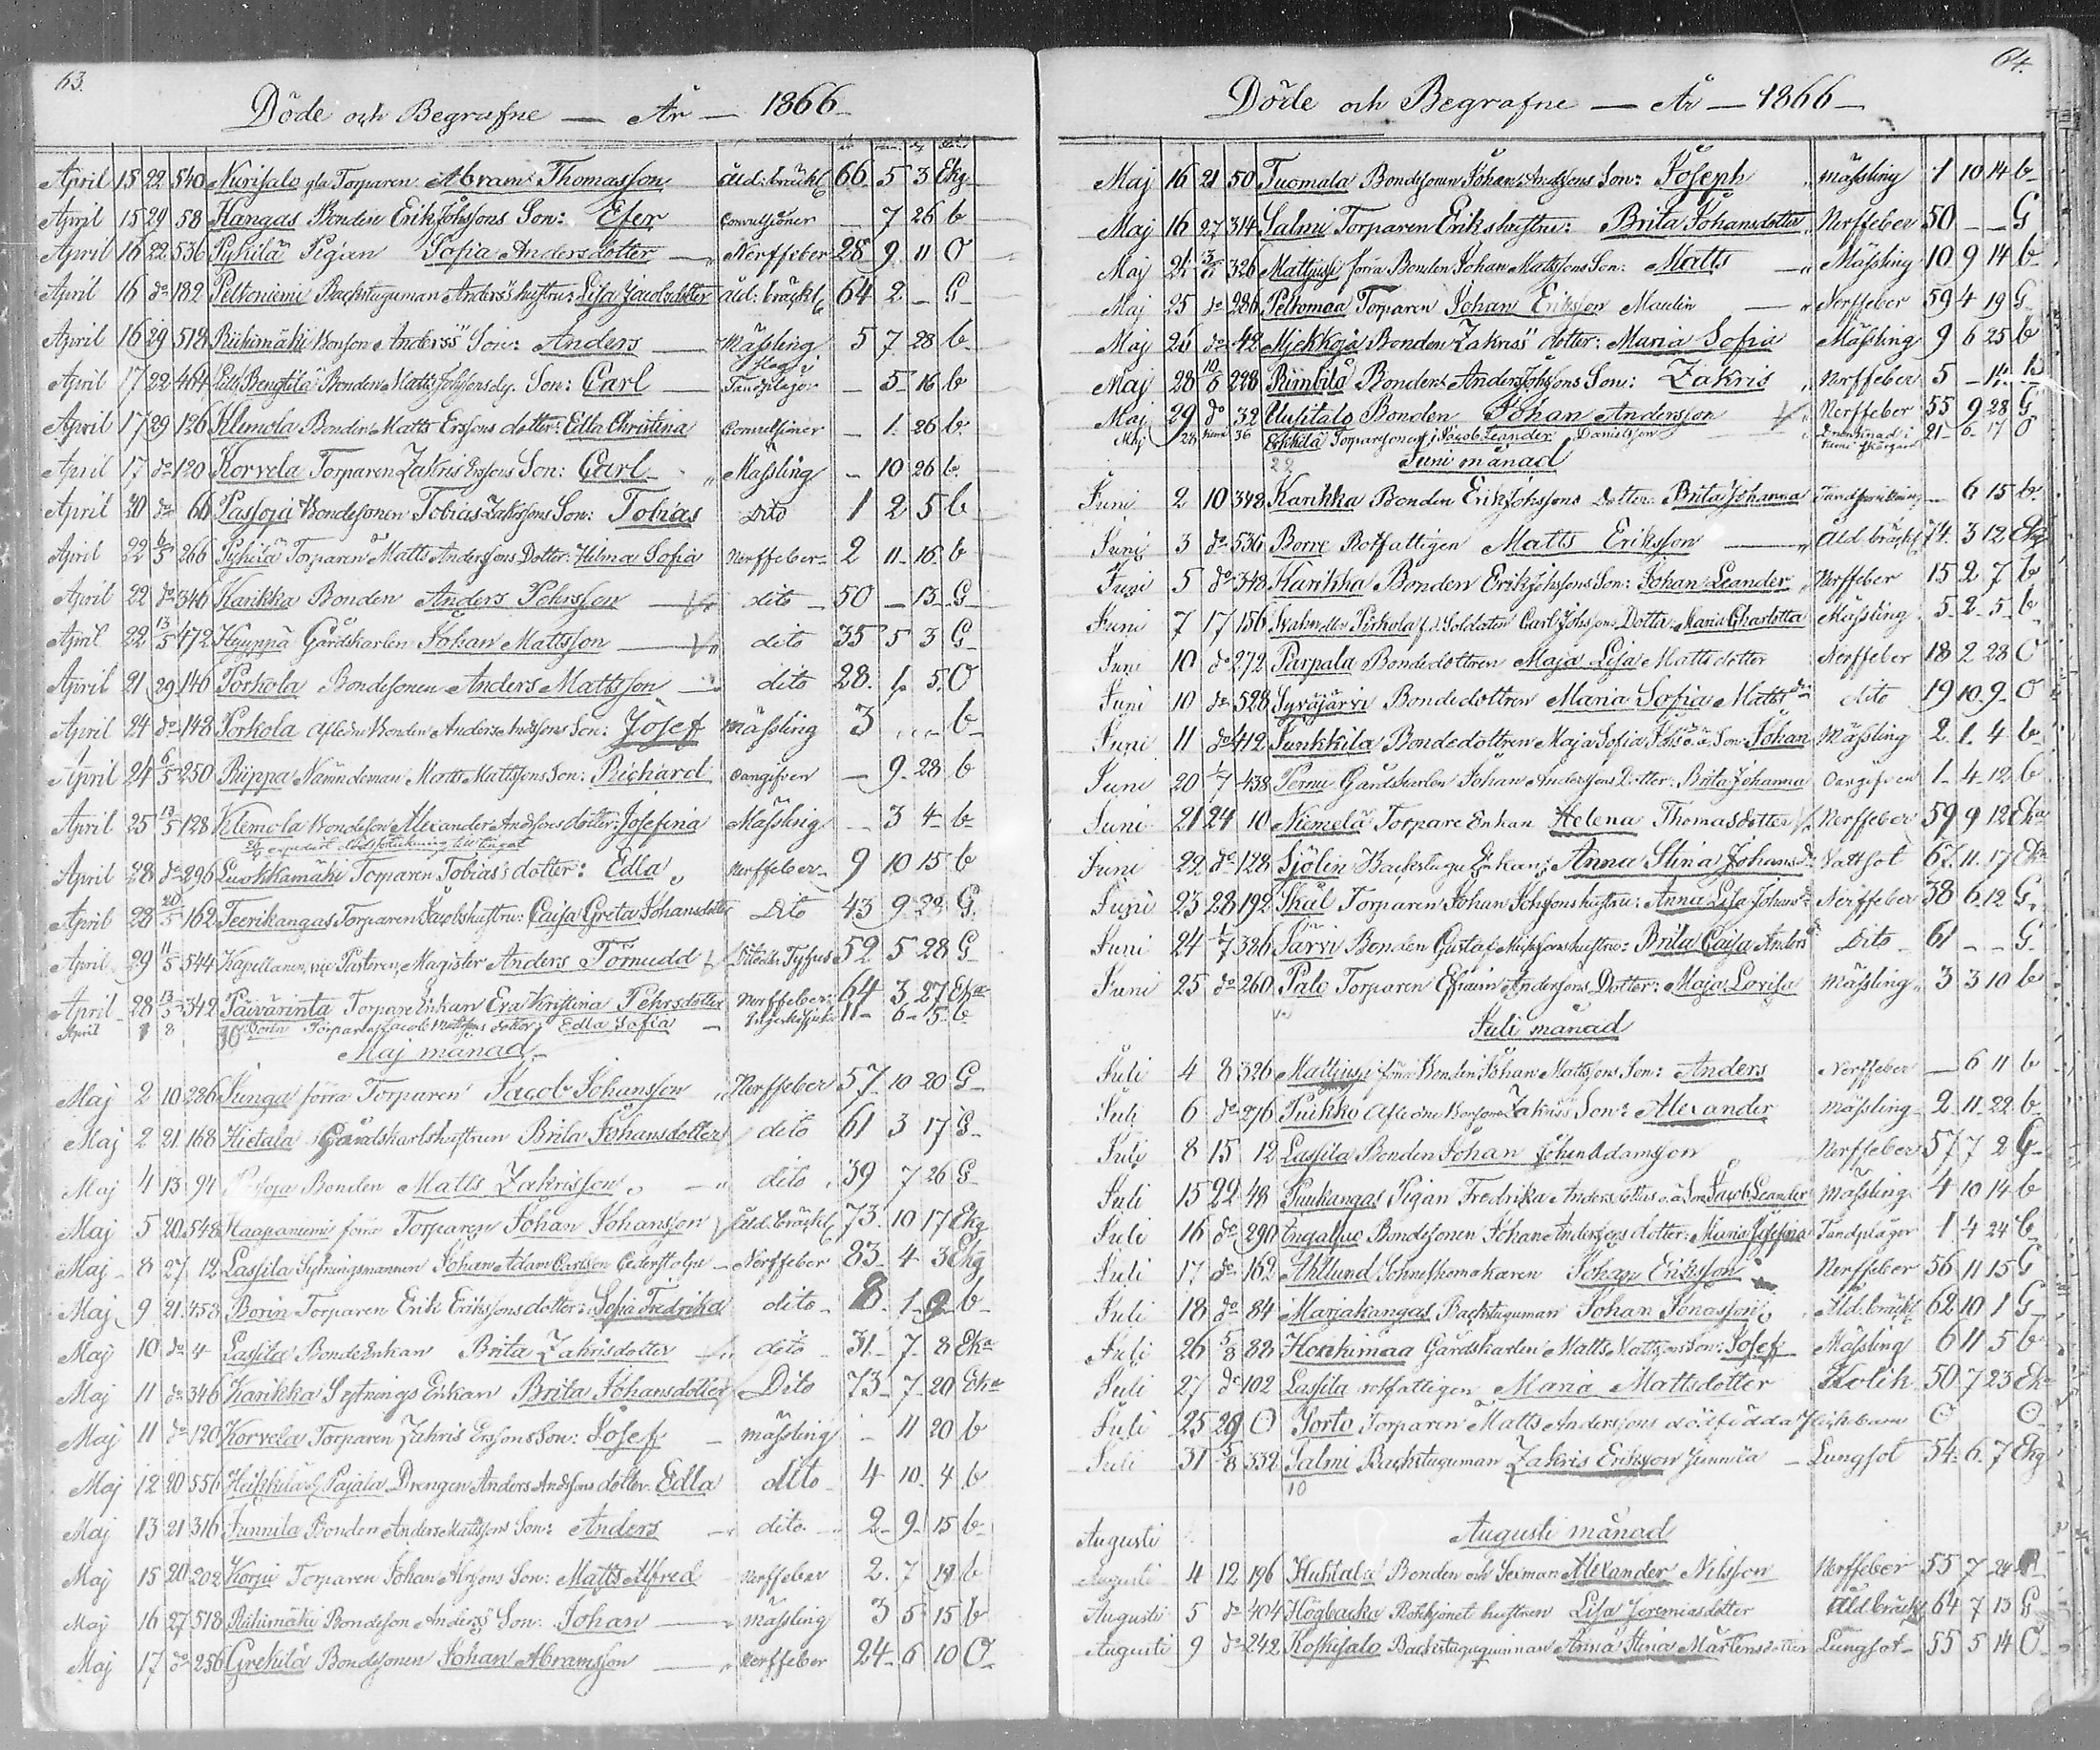 63.
Döde och Begrafne — År — 1866 —
April 15 22 540 Nürisalo gla Torparen Abram Thomasson åld: bräckl 66 5 3 Ekg
April 15 29 58 Kangas Bonden Erik Johssons Son: Efer Convulsioner — 7 26 b
April 16 22 536 Pyhilä Pigan Sofia Andersdotter — Nerffeber 28 9 11 O
April 16 do 182 Peltoniemi Backstuguman Anders's hustru: Lisa Jacobsdotter åld: bräckl 64 2 — G
April 16 29 518 Riihimäki Bonson Anders's Son: Anders — Mässling 5 7 28 b
April 17 22 464 Bengtilä Bonden Matts Johssons dy. Son: Carl — Tandplågor — 5 16 b
April 17 29 126 Klemola Bonden Matts Erssons dotter: Edla Christina Convulsioner — 1 26 b
April 17 do 120 Korvela Torparen Zakris Erssons Son: Carl — Mässling — 10 26 b
April 20 do 66 Passoja Bondesonen Tobias Zakrssons Son: Tobias Dito 1 2 5 b
April 22 6/5 266 Pyhilä Torparen Matts Anderssons Dotter: Hilma Sofia Nerffeber 2 11 16 b
April 22 do 346 Karikka Bonden Anders Pehrsson — dito 50 — 13 G
April 22 13/5 472 Kyyppä Gårdskarlen Johan Mattsson — dito 35 5 3 G
April 21 29 146 Porkola Bondesonen Anders Mattsson — dito 28 1 5 O
April 24 do 148 Porkola Afledne Bonden Anders Andssons Son: Josef Mässling 3 — — b
April 24 6/5 250 Riippa Nämndeman Matts Mattssons Son: Richard Oangifven — 9 28 b
April 25 13/5 128 Klemola Bondeson Alexander Andssons dotter: Josefina Mässling — 3 4 b
April 28 do 296 Luokkamäki Torparen Tobias's dotter: Edla Nerffeber 9 10 15 b
April 28 20/5 162 Teerikangas Torparen Jacobs hustru: Caisa Greta Johansdotter Dito 43 9 28 G
April 29 11/5 544 Kapellanen, vice Pastoren, Magister Anders Törnudd Typhus 52 5 28 G
April 28 13/5 342 Päivärinta Torpare Enkan Eva Kristina Pehrsdotter Nerffeber 64 3 27 Eka
April 8 Torparen Jacob Mattssons dotter: Edla Sofia — 11 6 5 b
30
Maj månad
Maj 2 10 286 Junga förra Torparen Jacob Johansson Nerffeber 57 10 20 G
Maj 2 21 168 Hietala Gårdskarlshustrun Brita Johansdotter dito 61 3 17 G
Maj 4 13 94 Bonden Matts Zakrisson — dito 39 7 26 G
Maj 5 20 548 Haapaniemi förra Torparen Johan Johansson åld. bräckl 73 10 17 Ekg
Maj 8 27 12 Lassila Sytningsmannen Johan Adam Carlsson Cederstolpe — Nerffeber 83 4 3 Ekg
Maj 9 21 453 Borin Torparen Erik Erikssons dotter: Sofia Fredrika dito 8 1 9 b
Maj 10 do 4 Lassila Bonde Enkan Brita Zakrisdotter dito 31 7 8 Eka
Maj 11 do 346 Karikka Sytnings Enkan Brita Johansdotter Dito 73 7 20 Eka
Maj 11 do 120 Korvela Torparen Zakris Erssons Son: Josef — Mässling — 11 20 b
Maj 12 20 556 Heikkilä el. Pajala Drengen Anders Andssons dotter: Edla dito 4 10 4 b
Maj 13 21 316 Junnila Bonden Anders Mattssons Son: Anders — dito 2 9 15 b
Maj 15 20 202 Korpi Torparen Johan Abrssons Son: Matts Alfred Nerffeber 2 7 19 b
Maj 16 27 518 Riihimäki Bondeson Anders's Son: Johan — Mässling 3 5 15 b
Maj 17 do 256 Grekilä Bondesonen Johan Abramsson — Nerffeber 24 6 10 O
64.
Döde och Begrafne — År — 1866 —
Maj 16 21 50 Tuomala Bondesonen Johan Andssons Son: Joseph Mässling 1 10 14 b
Maj 16 27 314 Salmi Torparen Eriks hustru: Brita Johansdotter Nerffeber 50 — — G
Maj 24 3/6 326 Mattjussi förra Bonden Johan Mattssons Son: Matts — Mässling 10 9 14 b
Maj 25 do 286 Peltomaa Torparen Johan Eriksson Maulin — Nerffeber 59 4 19 G
Maj 26 do 42 Mjekkoja Bonden Zakris's dotter: Maria Sofia Mässling 9 6 25 b
Maj 28 10/6 228 Rimbilä Bonden Anders Johssons Son: Zakris Nerffeber 5 — 14 b
Maj 29 do 32 Uusitalo Bonden Johan Andersson Nerffeber 55 9 28 G
Maj 28 36 Torparsonen Jacob Leander Danielsson Drunknad i 21 6 17 O
22
Juni månad
Juni 2 10 342 Karikka Bonden Erik Johssons Dotter: Brita Johanna — 6 15 b
Juni 3 do 536 Borre Rotfattigen Matts Eriksson — Åld. bräckl 74 3 12 Ekg
Juni 5 do 348 Karikka Bonden Erik Johssons Son: Johan Leander Nerffeber 15 2 7 b
Juni 7 17 156 Porkola f.d. Soldaten Carl Johssons Dotter: Maria Charlotta Mässling 5 2 5 b
Juni 10 do 272 Parpala Bondedottren Maja Lisa Mattsdotter Nerffeber 18 2 28 O
Juni 10 do 528 Syväjärvi Bondedottren Maria Sofia Mattsdr dito 19 10 9 O
Juni 11 do 412 Junkkila Bondedottren Maja Sofia Johsd. o.ä. Son: Johan Mässling 2 1 4 b
Juni 20 1/7 438 Pernu Gårdskarlen Johan Anderssons Dotter: Brita Johanna Oangifven 1 4 12 b
Juni 21 24 10 Niemelä Torpare Enkan Helena Thomasdotter Nerffeber 59 9 12 Eka
Juni 22 do 128 Sjölin Backstugu Enkan: Anna Stina Johansdr Vattsot 67 11 17 Eka
Juni 23 28 192 Skäl Torparen Johan Johssons hustru: Anna Lisa Johansdr Nerffeber 38 6 12 G
Juni 24 1/7 386 Järvi Bonden Gustaf hustru: Brita Caisa Andersdr Dito 61 — — G
Juni 25 do 260 Palo Torparen Efraim Anderssons Dotter: Maja Lovisa Mässling 3 3 10 b
Juli månad
Juli 4 8 326 Mattjussi förra Bonden Johan Mattssons Son: Anders Nerffeber — 6 11 b
Juli 6 do 276 Puikko Afledne Bonson Zakris's Son: Alexander Mässling 2 11 22 b
Juli 8 15 12 Lassila Bonden Johan Johan Adamsson Nerffeber 57 7 2 G
Juli 15 22 48 Puukangas Pigan Fredrika Andersdotters o.ä. Son Jacob Leander Mässling 4 10 14 b
Juli 16 do 290 Engalsuo Bondesonen Johan Anderssons dotter: Maria Josefina Tandplågor 1 4 24 b
Juli 17 do 162 Ahllund Sohneskomakaren Johan Eriksson Nerffeber 56 11 15 G
Juli 18 do 84 Marjakangas Backstuguman Johan Jonasson Åld. bräckl 62 10 1 G
Juli 26 5/8 88 Honkimaa Gårdskarlen Matts Mattssons Son: Josef Mässling 6 11 5 b
Juli 27 do 102 Lassila rotfattigen Maria Mattsdotter Kolik 50 7 23 Eka
Juli 25 29 O Porto Torparen Matts Anderssons dödfödda flickbarn O O
Juli 31 5/8 332 Salmi Backstuguman Zakris Eriksson Junnila — Lungsot 54 6 7 Ekg
10
Augusti Augusti månad
Augusti 4 12 196 Huhtala Bonden och Sexman Alexander Nilsson Nerffeber 55 7 24
Augusti 5 do 404 Högbacka Rothjonet hustrun Lisa Jeremiasdotter Åld. bräckl 64 7 13 G
Augusti 9 do 242 Koskisalo Backstuguqvinnan Anna Stina Mårtensdotter Lungsot 55 5 14 O